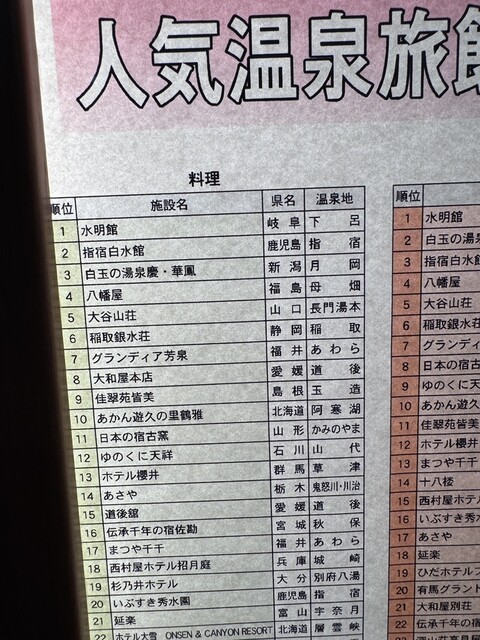 人気温泉旅館
料理
順位 施設名 県名 温泉地
1 水明館 岐阜 下呂
2 指宿白水館 鹿児島 指宿
3 白玉の湯泉慶・華鳳 新潟 月岡
4 八幡屋 福島 母畑
5 大谷山荘 山口 長門湯本
6 稲取銀水荘 静岡 稲取
7 グランディア芳泉 福井 あわら
8 大和屋本店 愛媛 道後
9 佳翠苑皆美 島根 玉造
10 あかん遊久の里鶴雅 北海道 阿寒湖
11 日本の宿古窯 山形 かみのやま
12 ゆのくに天祥 石川 山代
13 ホテル櫻井 群馬 草津
14 あさや 栃木 鬼怒川・川治
15 道後舘 愛媛 道後
16 伝承千年の宿佐勘 宮城 秋保
17 まつや千千 福井 あわら
18 西村屋ホテル招月庭 兵庫 城崎
19 杉乃井ホテル 大分 別府八湯
20 いぶすき秀水園 鹿児島 指宿
21 延楽 富山 宇奈月
22 ホテル大雪 ONSEN & CANYON RESORT 北海道 層雲峡
順位
1 水明館
2 白玉の湯泉
3 指宿白水館
4 八幡屋
5 大谷山荘
6 稲取銀水荘
7 グランディ
8 日本の宿古
9 ゆのくに天
10 あかん遊久
11 佳翠苑皆美
12 ホテル櫻井
13 まつや千千
14 十八楼
15 西村屋ホテル
16 いぶすき秀水
17 あさや
18 延楽
19 ひだホテルプ
20 有馬グランド
21 大和屋別荘
22 伝承千年の宿